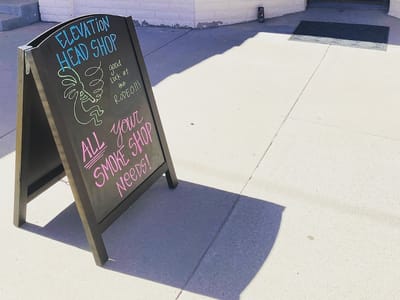 ELEVATION
HEAD SHOP
good
luck at
the
RODEO!!!
ALL Your
SMOKE SHOP
NEEDS!